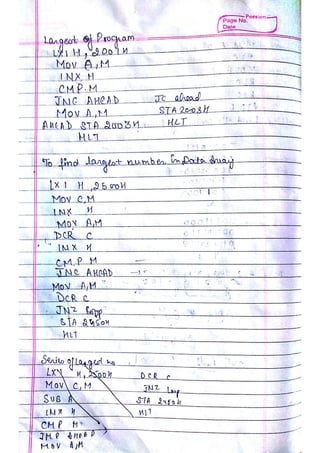 Page No.
Date
Largest of Program
LXI H, 2001H
MOV A,M
INX H
CMP. M
JNC AHEAD JC ahead
MOV A, M STA 2003H
AHEAD STA 2003H HLT
HLT
To find largest number In Data
LXI H, 2500H
MOV C,M
INX H
MOV A,M
DCR C
INX H
CMP M
JNC AHEAD
MOV A,M
DCR C
JNZ loop
STA 2450H
HLT
Series of no
LXI H, 2500H DCR C
MOV C,M JNZ Loop
SUB A STA 2450H
INX H HLT
CMP M
JMP AHEAD
MOV A,M